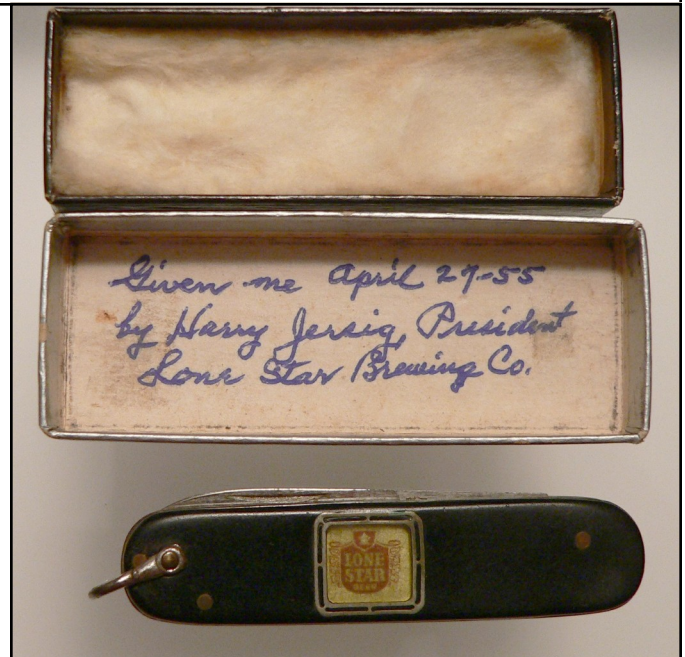 Given me April 27-55
by Harry Jersig, President
Lone Star Brewing Co.
LONE
STAR
BEER